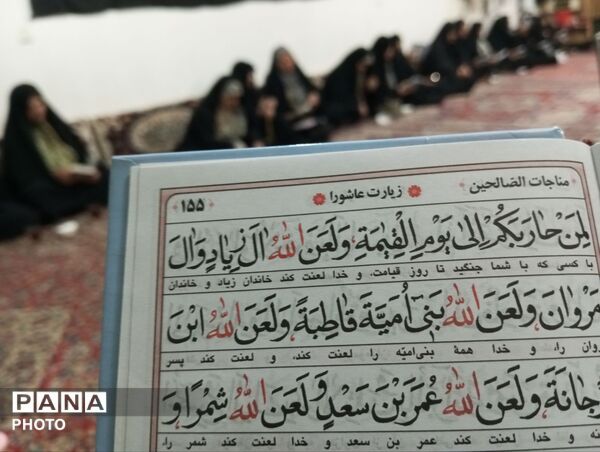 مناجات الصّالحین زیارت عاشورا ۱۵۵
لِمَنْ حٰارَبَکُمْ اِلیٰ یَوْمِ الْقِیٰمَةِ، وَ لَعَنَ اللّٰهُ اٰلَ زِیٰادٍ وَ اٰلَ
با کسی که با شما جنگید تا روز قیامت، و خدا لعنت کند خاندان زیاد و خاندان
مَرْوٰانَ، وَ لَعَنَ اللّٰهُ بَنی اُمَیَّةَ قٰاطِبَةً، وَ لَعَنَ اللّٰهُ ابْنَ
روان را، و خدا همهٔ بنی‌امیّه را لعنت کند، و لعنت کند پسر
جٰانَةَ، وَ لَعَنَ اللّٰهُ عُمَرَ بْنَ سَعْدٍ، وَ لَعَنَ اللّٰهُ شِمْراً، وَ
نه و خدا لعنت کند عمر بن سعد و خدا لعنت کند شمر را،
PANA
PHOTO